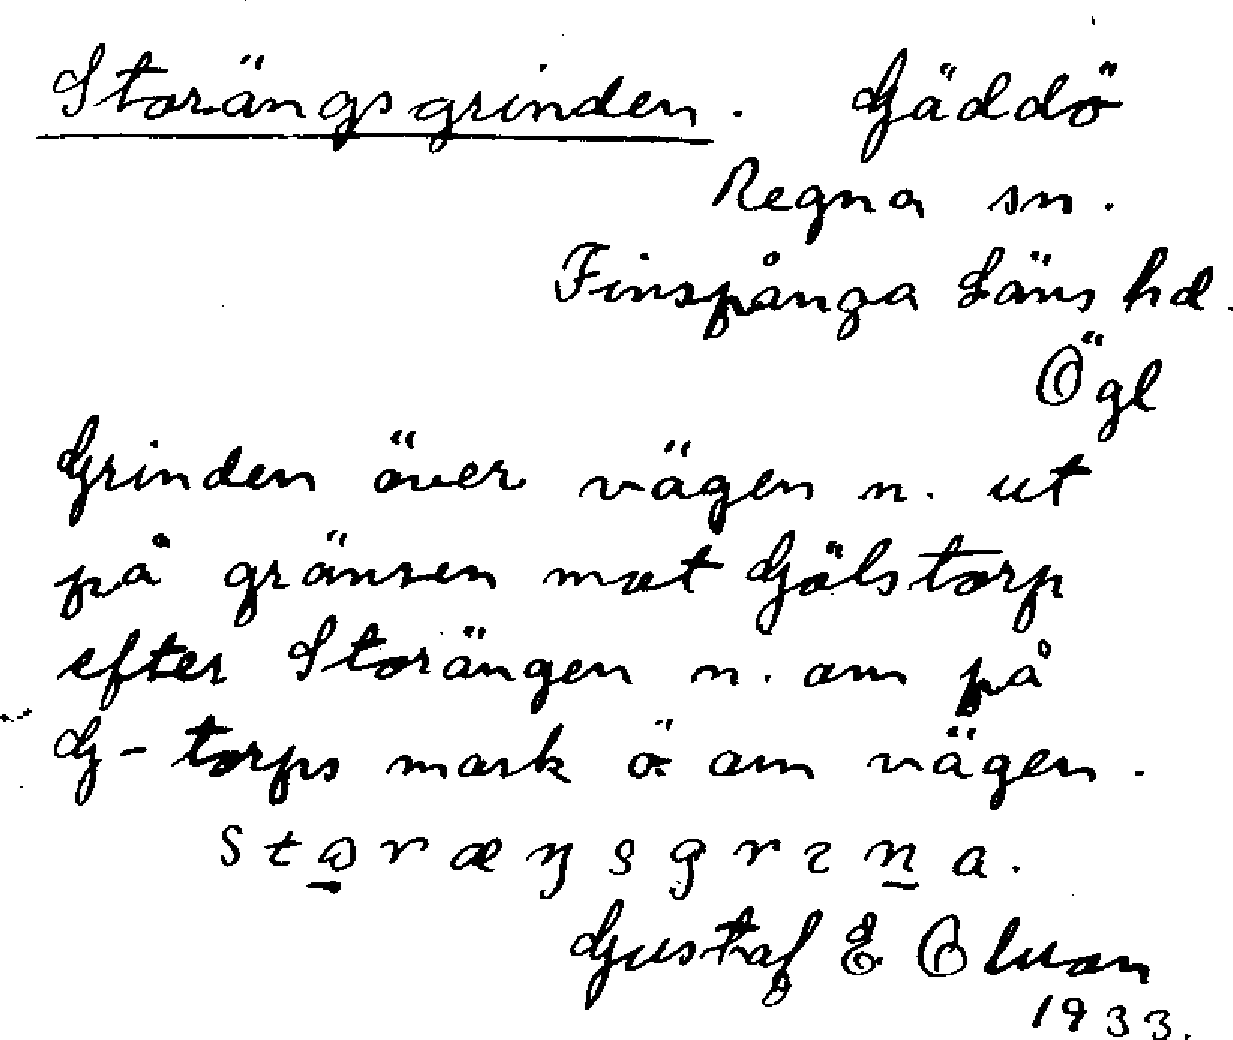 Storängsgrinden. Gäddö
Regna sn.
Finspånga Läns hd.
Ögl
Grinden över vägen n. ut
på gränsen mot Gölstorp
efter Storängen n. om på
G-torps mark ö om vägen.
Gustaf E
1933.